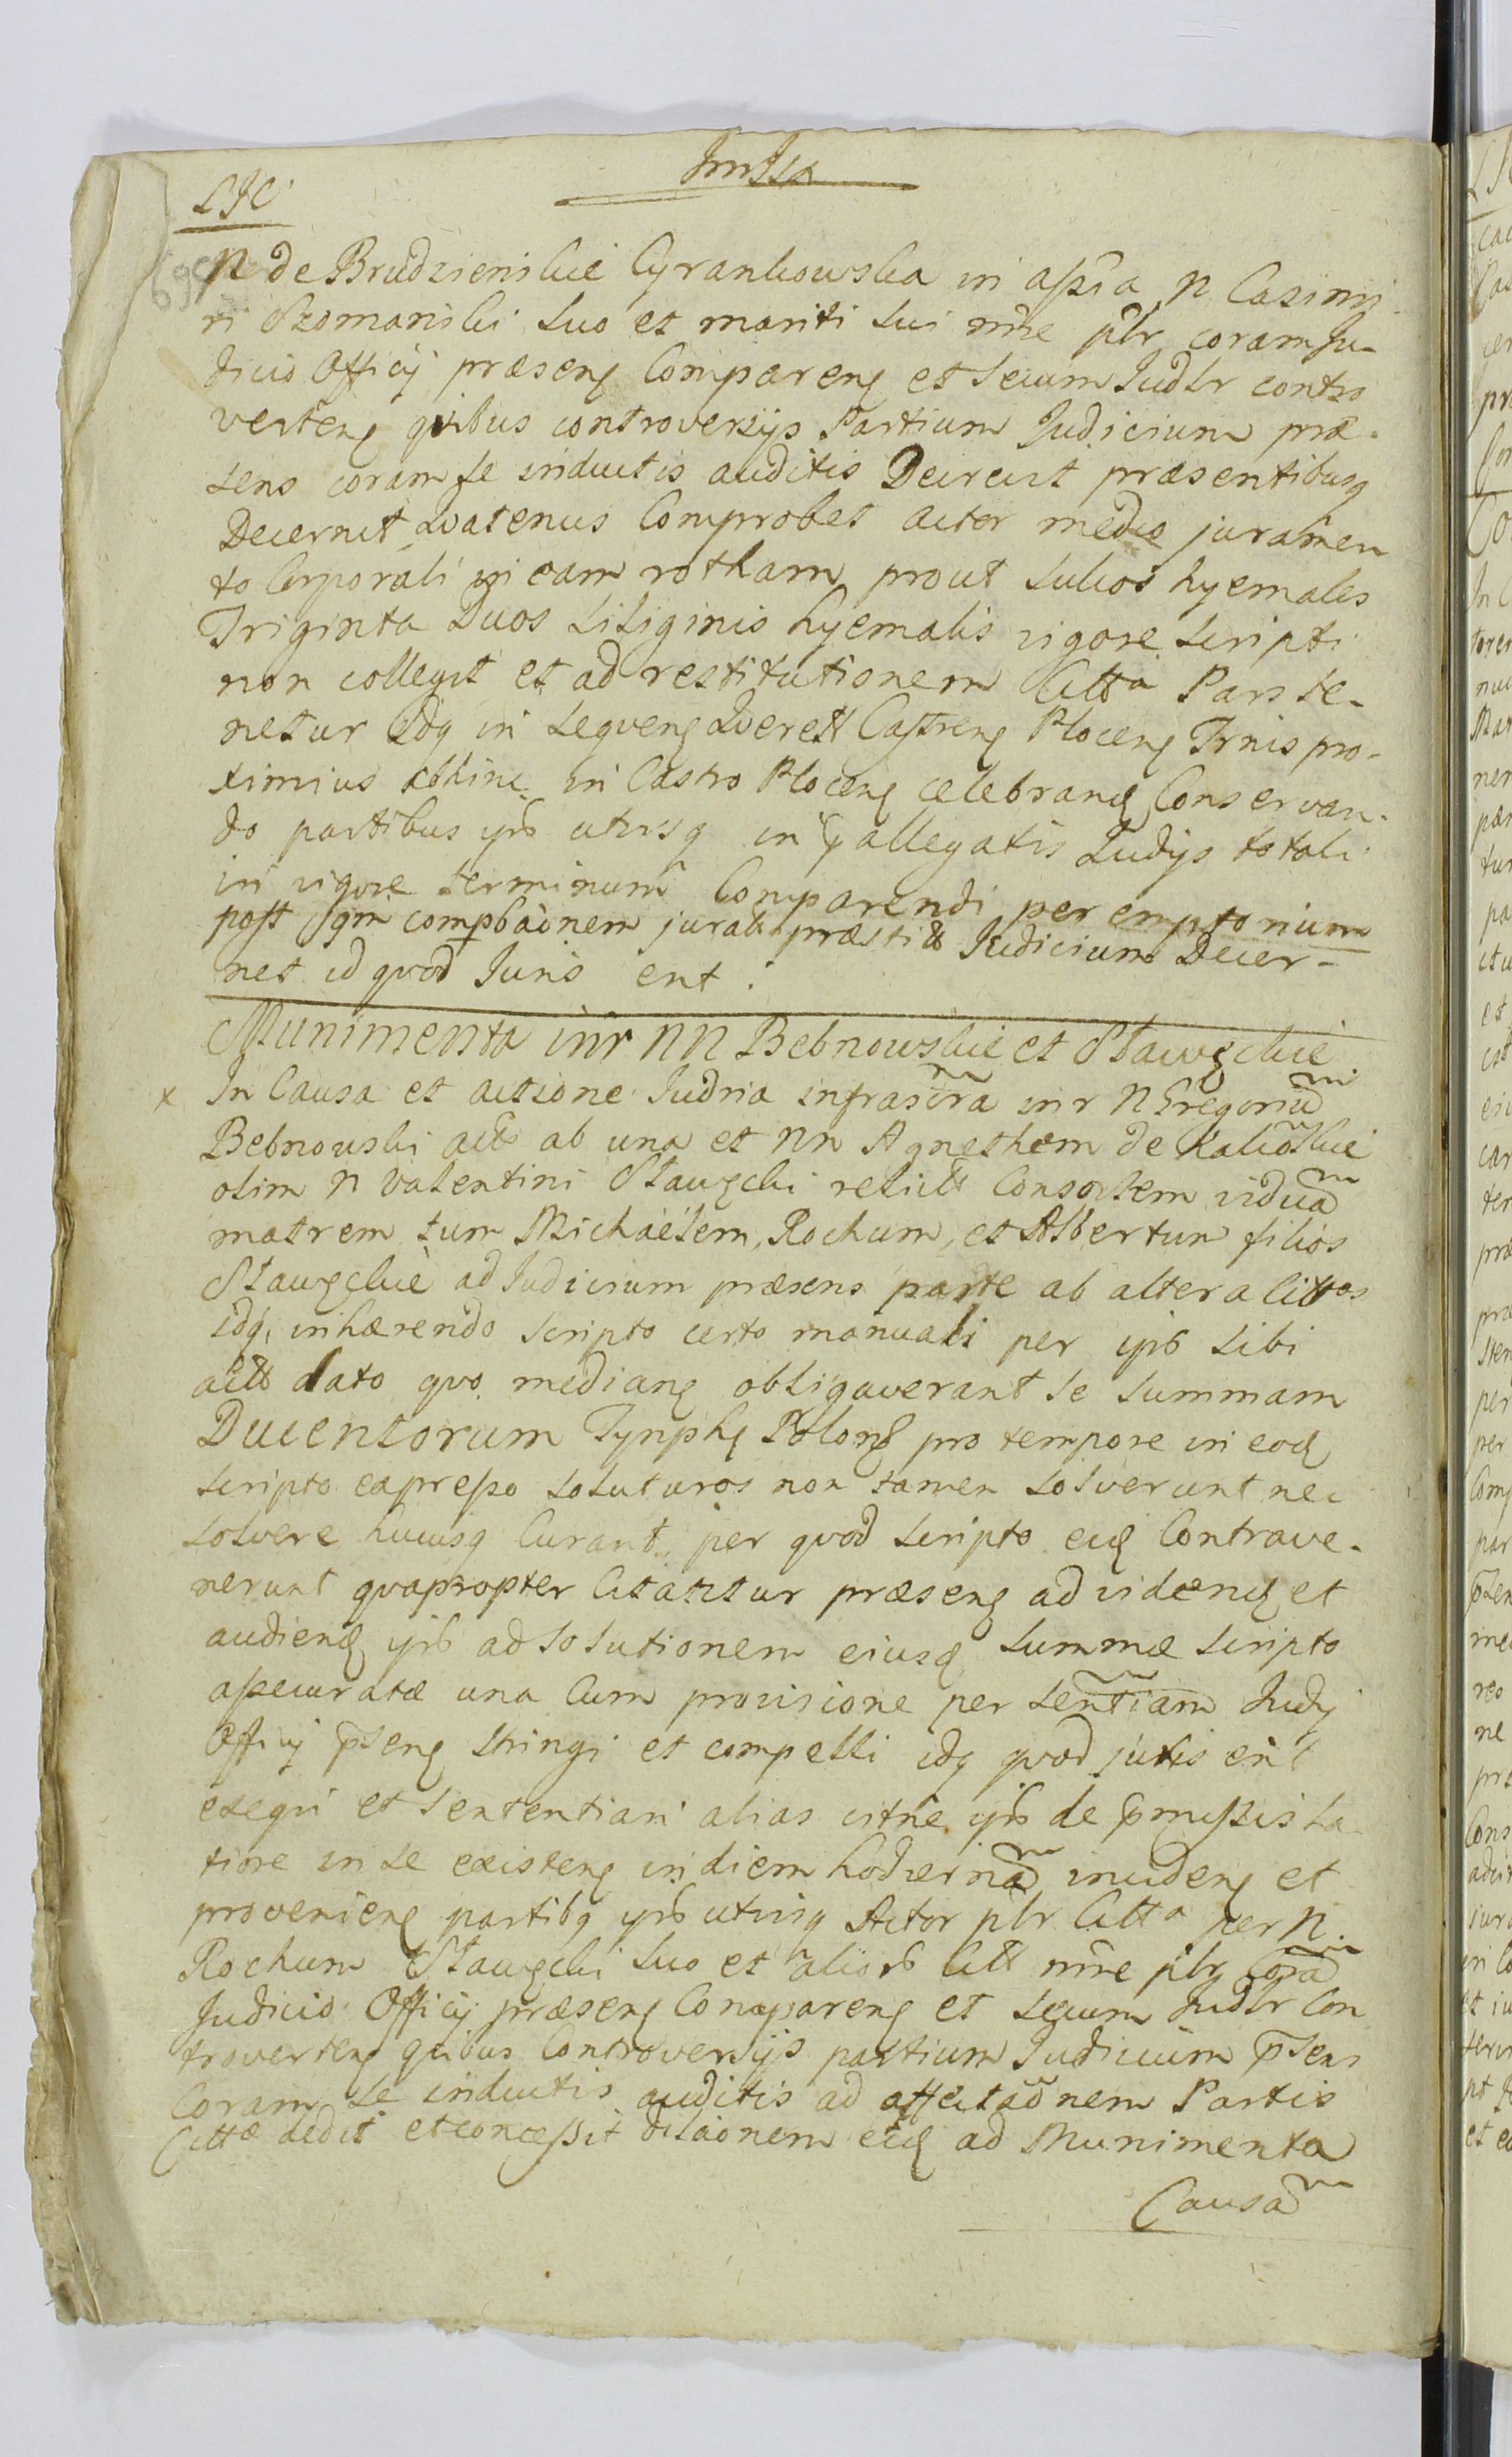 LJC
N de Brudzienskie Cyrankowska in assa N Casimi-
ri Szomanski suo et mariti sui nne plr coram Ju-
dicio Officij præsenȝ Comparenȝ et secum Judlr contro
vertenȝ qvibus controversijs Partium Judicium præ-
sens coram se inductis auditis Decrevit præsentibusq
Decernit Qvatenus Comprobet actor medio juramen
to Corporali in eam rotham prout sulcos hyemales
Triginta Duos siliginis hyemalis vigore scripti
non collegit et ad restitutionem Citta Pars te-
netur Idq in seqvenȝ Qverell Castrenȝ Plocenȝ Trnis pro-
ximius abhinc in Castro Plocenȝ celebranȝ Conservan-
do partibus ipis utrisq in allegatis Judijs totali
in vigore terminum Comparendi peremptorium
post qm compbaonem jurati præstiti Judicium Decer-
net id qvod Juris erit.
Munimenta intr NN Bebnowskie et Sławęckie
x In Causa et actione Judria infrascra intr N Gregoriũ
Bebnowski actt ab una et NN Agnethem de
olim N Valentini Sławęcki relictt Consortem viduã
matrem tum Michaëlem, Rochum, et Albertum filios
Sławęckie ad Judicium præsens parte ab altera cittos
idq, inhærendo scripto certo manuali per ipos sibi
actt dato qvo medianȝ obligaverant se summam
Ducentorum Tynphȝ Polonȝ pro tempore in eoȝ
scripto expresso soluturos non tamen solverunt nec
solvere hucusq Curant, per qvod scripto eiȝ Contrave-
nerunt qvapropter Citantur præsenȝ ad videnȝ et
audienȝ ipos ad solutionem eiusȝ summæ scripto
assecuratæ una Cum provisione per sentiam Judij
Officij psenȝ stringi et compelli idq qvod juris erit
exeqvi et sententiari alias citne ipis de pmissis la-
tiore in se existenȝ in diem hodiernã incidenȝ et
provenienȝ partibq ipis utrisq Actor plr Citta per N.
Rochum Sławęcki suo et alior Citt nne plr Corã
Judicio Officij præsenȝ Comparenȝ et secum Judlr Con
trovertenȝ qvibus Controversijs partium Judicium psens
Coram se inductis auditis ad affectãonem Partis
Cittæ dedit et concessit dilaonem eiȝ ad Munimenta
Causã